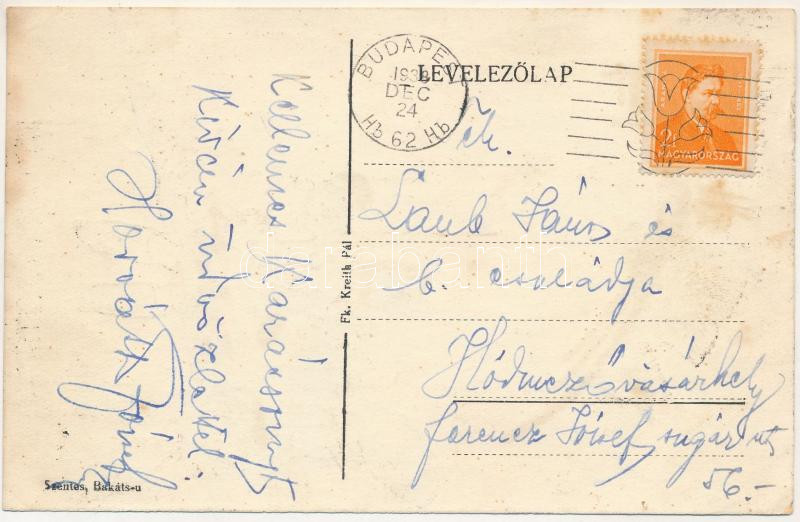 Kellemes Karácsonyt
Kíván üdvözlettel
Horváth József
Szentes, Bakáts-u
Fk. Kreith Pál
LEVELEZŐLAP
BUDAPEST
DEC
24
Hb 62 Hb
2f
MAGYARORSZÁG
Laub János és
b. családja
Hódmezővásárhely
ferencz József sugár út
56.-
darabanth